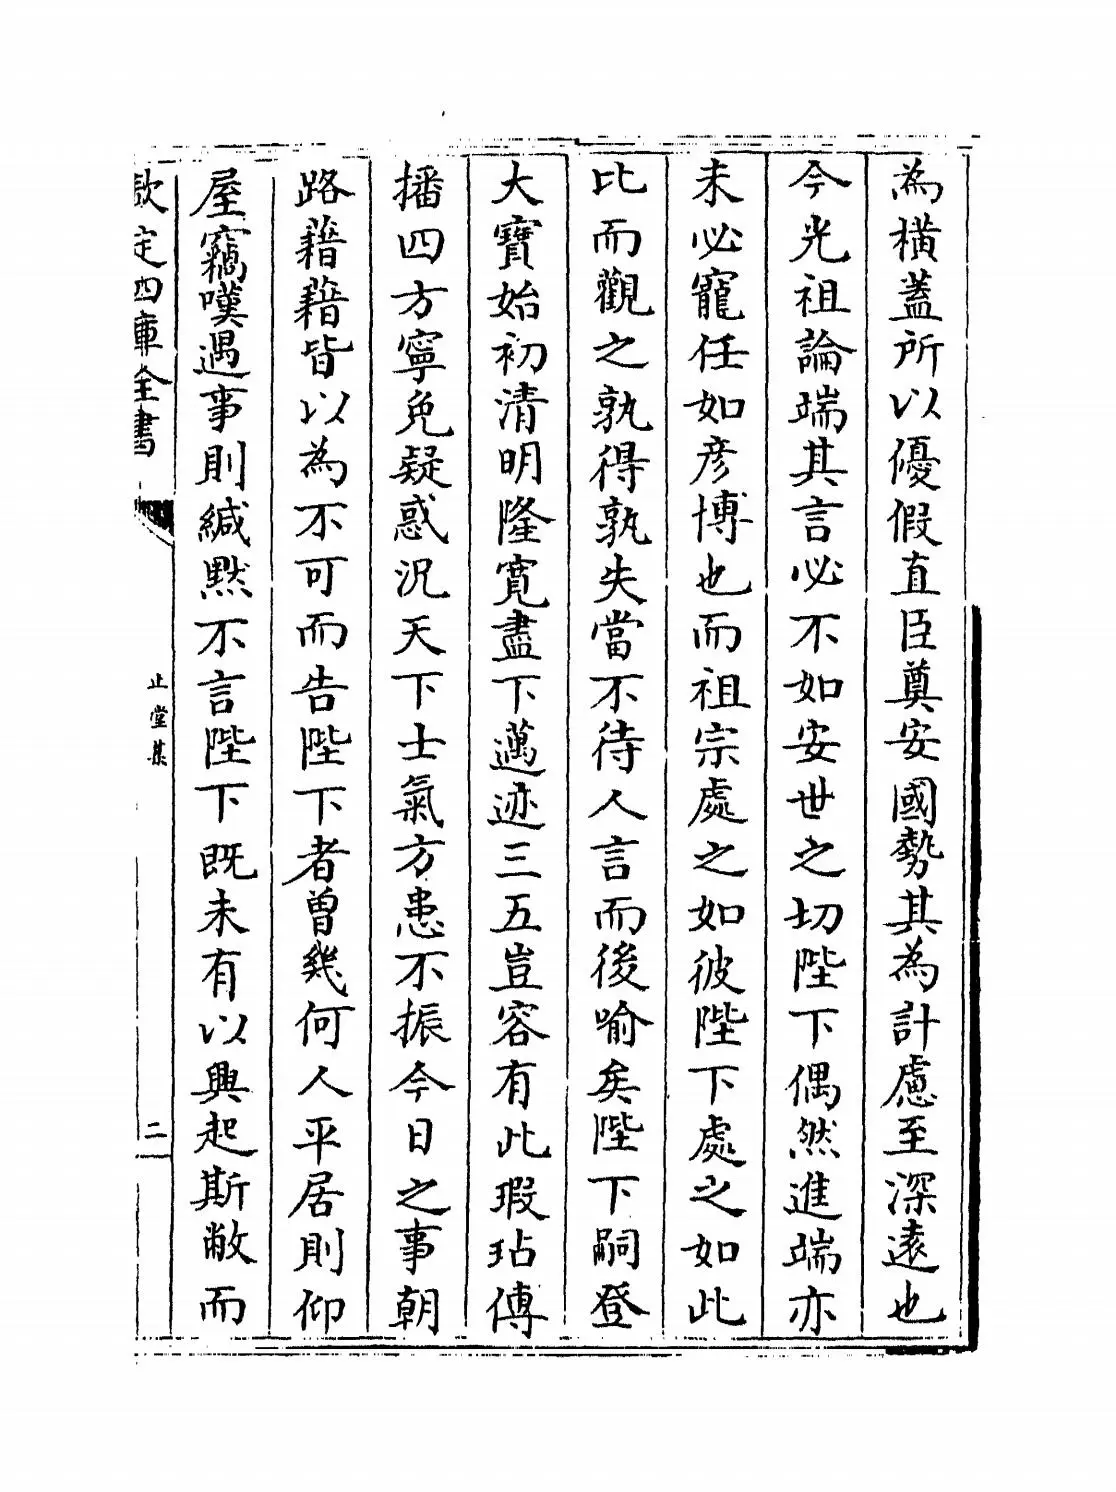 為橫蓋所以優假直臣奠安國勢其為計慮至深遠也
今光祖論端其言必不如安世之切陛下偶然進端亦
未必寵任如彦博也而祖宗處之如彼陛下處之如此
比而觀之孰得孰失當不待人言而後喻矣陛下嗣登
大寶始初清明隆寛盡下邁迹三五豈容有此瑕玷傳
播四方寧免疑惑況天下士氣方患不振今日之事朝
路藉藉皆以為不可而告陛下者曾幾何人平居則仰
屋竊嘆遇事則緘黙不言陛下既未有以興起斯敝而
欽定四庫全書
止堂集
二